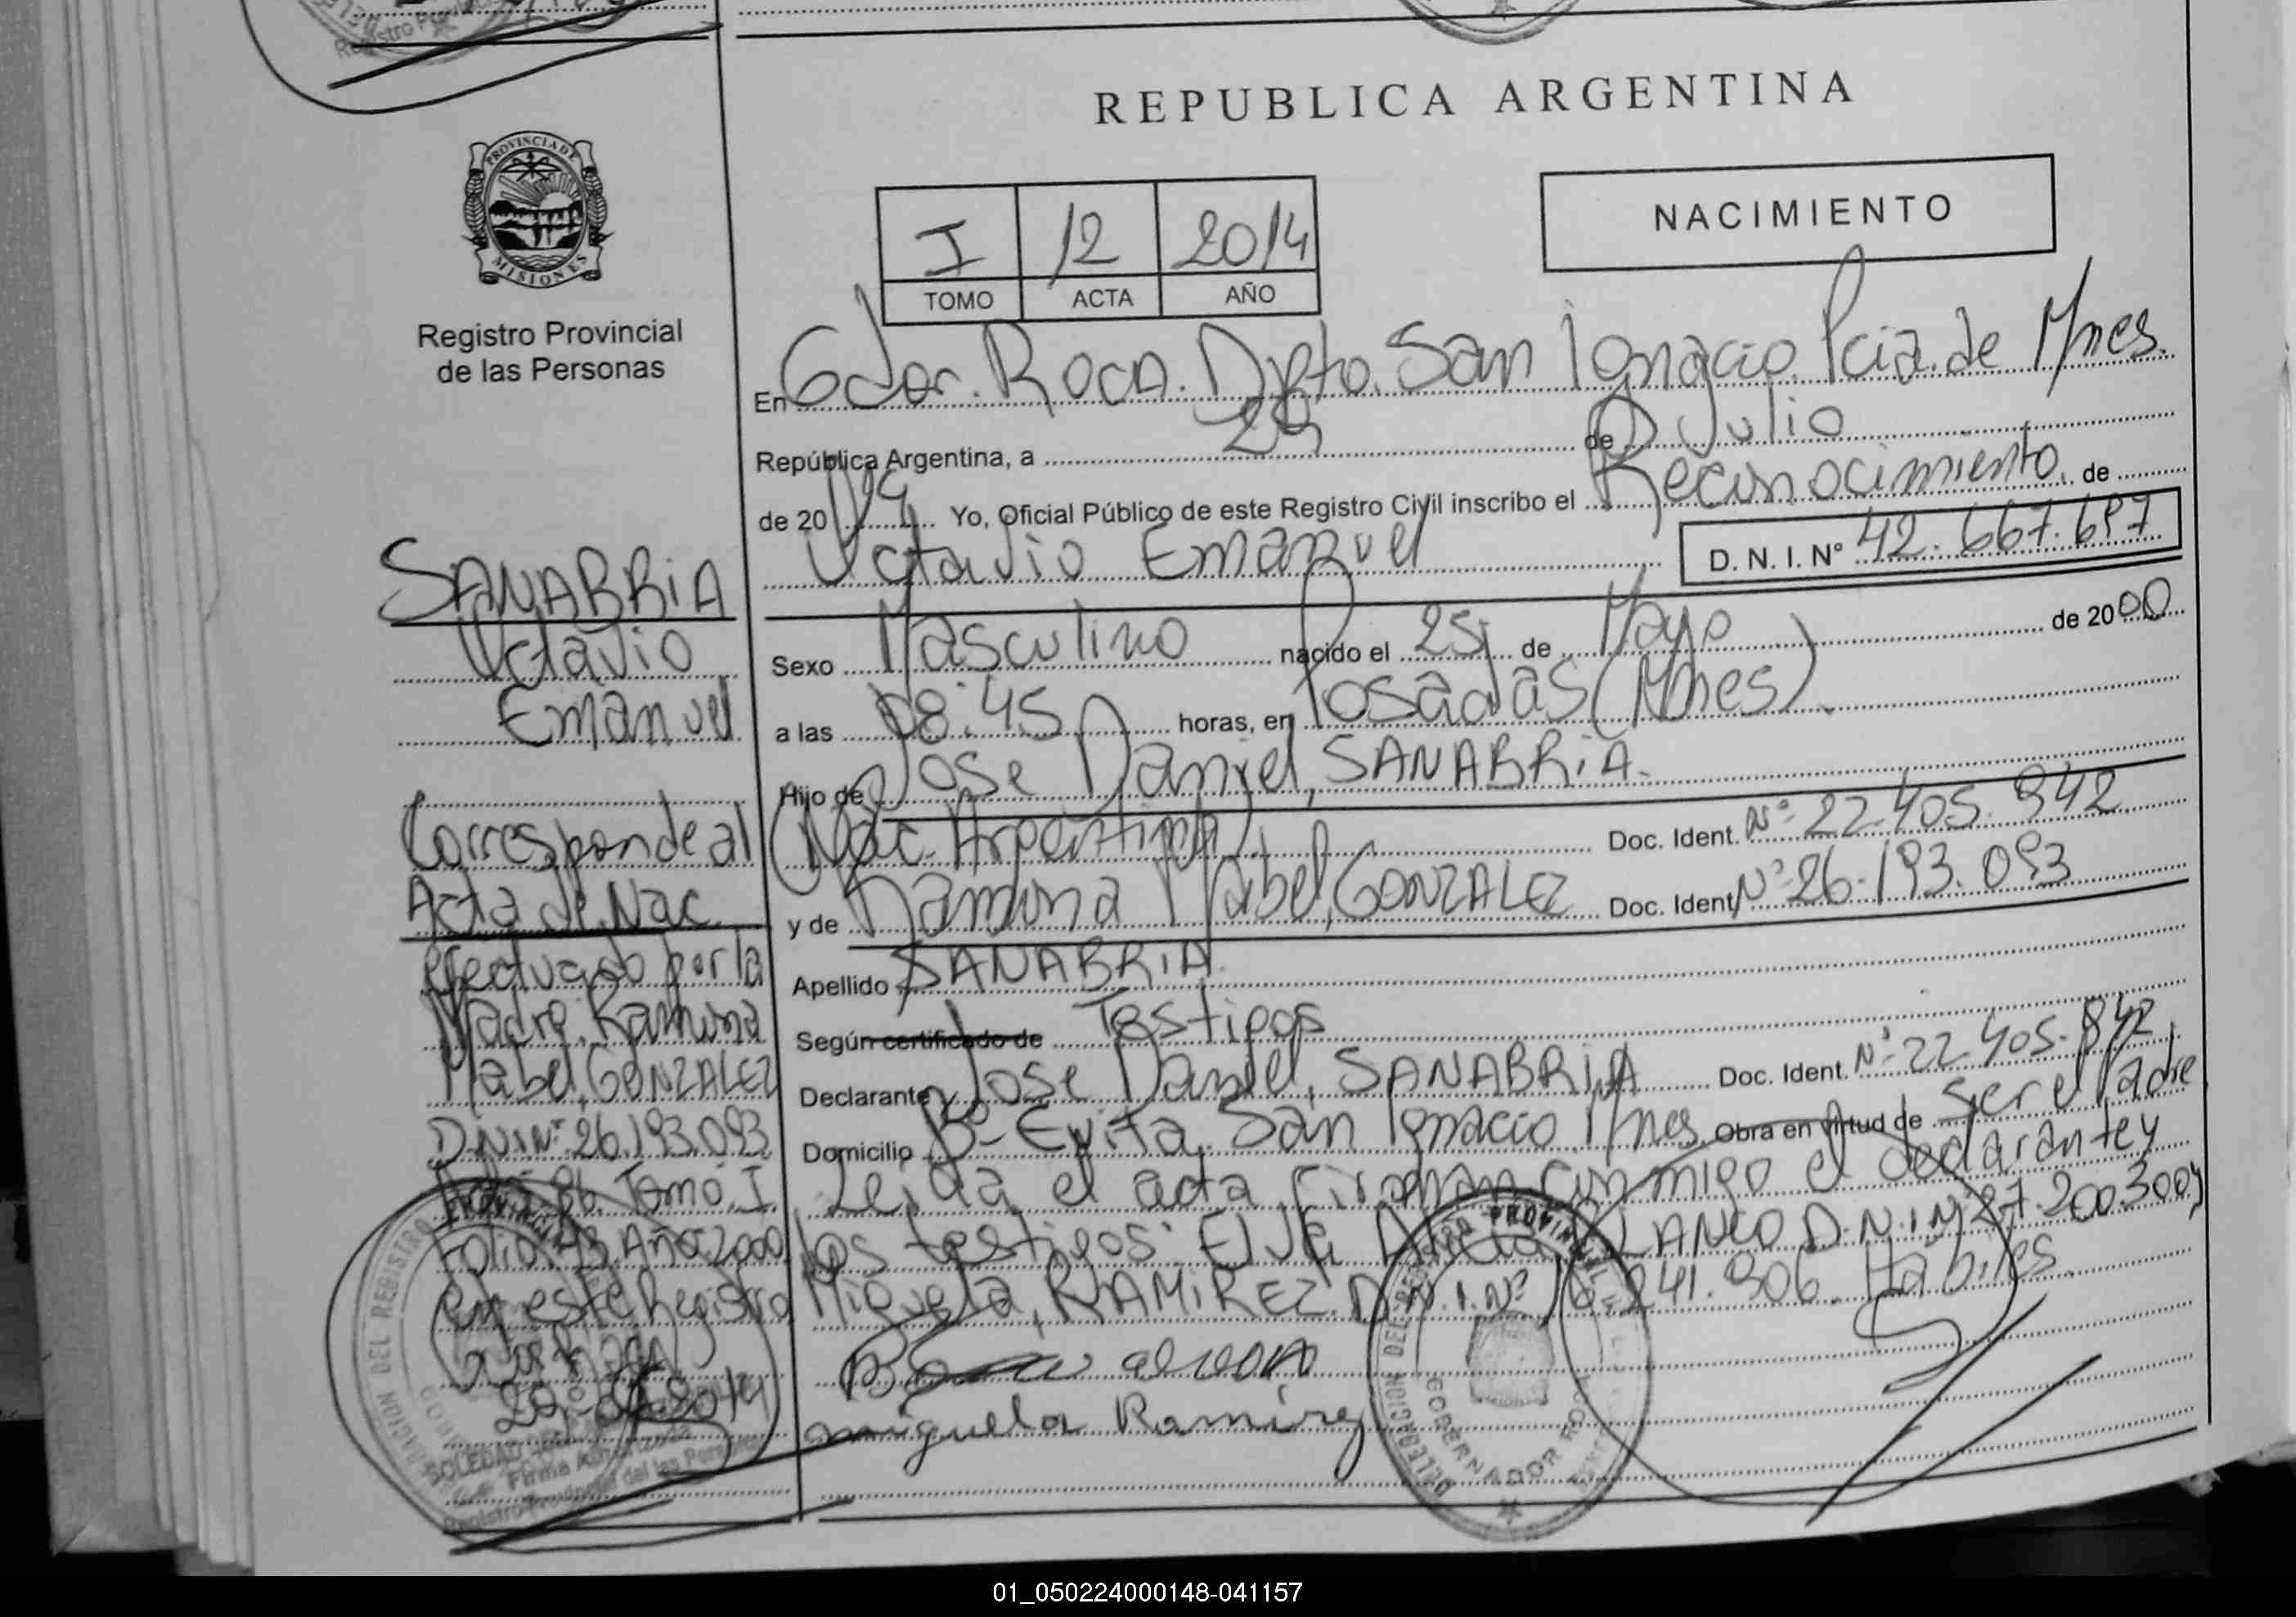 REPUBLICA ARGENTINA
PROVINCIA DE
MISIONES
Registro Provincial
de las Personas
I 12 2014
TOMO ACTA AÑO
NACIMIENTO
En Gdor. Roca. Dpto. San Ignacio Pcia. de Mnes.
República Argentina, a 29 de Julio
de 2014 Yo, Oficial Público de este Registro Civil inscribo el Reconocimiento de
Octavio Emanuel D. N. I. Nº 42.667.697
Sexo Masculino nacido el 25 de Mayo de 2000
a las 08:45 horas, en Posadas (Mnes).
Hijo de Jose Daniel, SANABRIA.
(Nac. Argentina) Doc. Ident. Nº: 22.405.842
y de Ramona Mabel, GONZALEZ Doc. Ident. Nº 26.193.093
Apellido SANABRIA.
Según certificado de Testigos
Declarante Jose Daniel, SANABRIA Doc. Ident. Nº: 22.405.842
Domicilio Bº- Evita. San Ignacio Mnes. Obra en virtud de ser el Padre
Leida el acta firman conmigo el declarante y
los testigos: BLANCO D.N.I Nº 27.200.300 y
Miguela, RAMIREZ. D.N.I. Nº 16.241.906. Habiles
miguela Ramirez
SANABRIA
Octavio
Emanuel
Corresponde al
Acta de Nac.
efectuado por la
Madre, Ramona
Mabel, GONZALEZ
D.N.I Nº: 26.193.093
86. Tomo. I
Folio: 43. Año: 2000
en este Registro
2014
SOLEDAD
Firma Autorizada
Registro Provincial de las Personas
DELEGACION DEL REGISTRO PROVINCIAL
GOBERNADOR ROCA
01_050224000148-041157